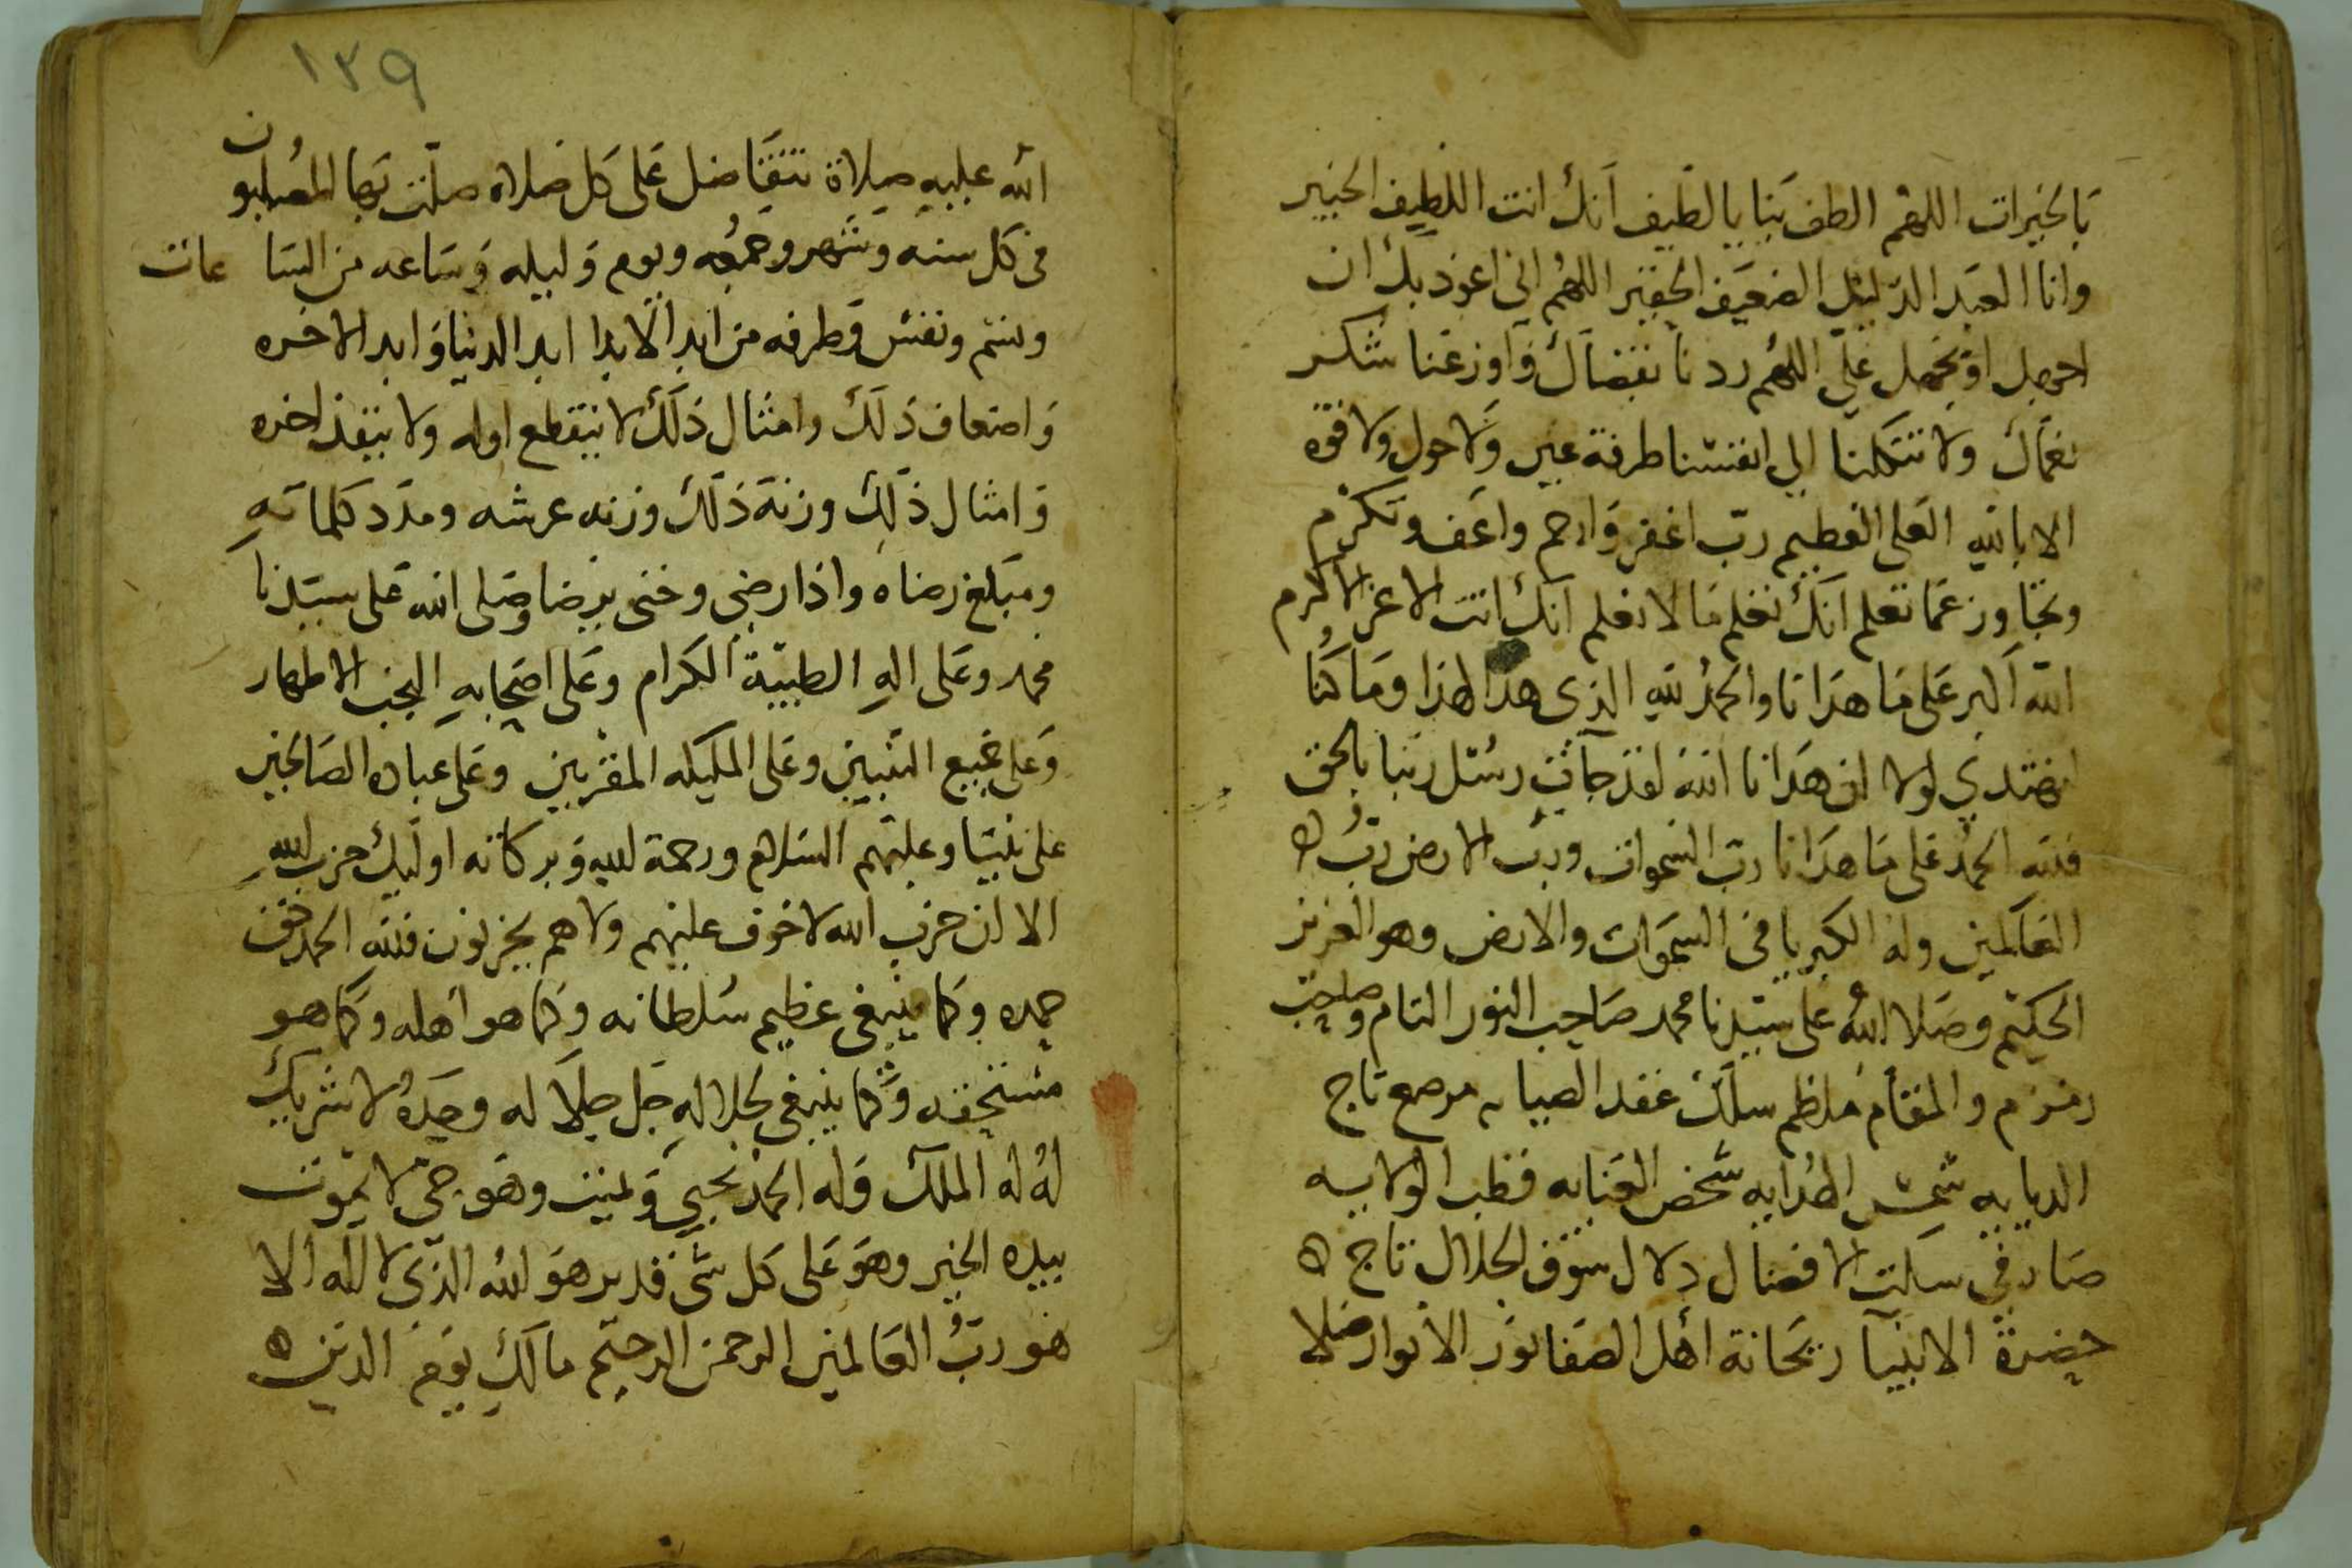 بالخيرات اللهم الطف بنا يا لطيف انك انت اللطيف الخبير
وانا العبد الدليل الضعيف الحقير اللهم اني اعوذ بك ان
اجهل او يجهل علي اللهم ردنا بفضلك واوزعنا شكر
نعمآك ولا تتكلنا الي انفسنا طرفة عين ولا حول ولا قوه
الا بالله العلي العظيم رب اغفر وارحم واعف وتكرم
وتجاوز عما تعلم انك تعلم ما لا نعلم انك انت الاعز والاكرم
الله اكبر على ما هدانا والحمد لله الذى هدا لهذا وما كنا
لنهتدي لولا ان هدانا الله لقد جآت رسل ربنا بالحق
فلله الحمد على ما هدانا رب السموات ورب الارض رب
العالمين وله الكبريا في السموات والارض وهو العزيز
الحكيم وصلا الله على سيدنا محمد صاحب النور التام وصاحب
زمزم والمقام منظم سلك عقد الصيانه مرصع تاج
الديايه شمس الهدايه شخص العنايه قطب الولايه
صار في سلت الافضال دلال سوق الجلال تاج
حضرة الانبيآ ريحانة اهل الصفا نور الانوار صلا
١٣٩
الله عليه صلاة تتفاضل على كل صلاه صلت بها المصلون
في كل سنه وشهر وجمعه ويوم وليله وساعه من الساعات
ونسم ونفس وطرفه من ابد الابدا ابد الدنيا وابد الاخره
واضعاف ذلك وامثال ذلك لا ينقطع اوله ولا ينفذ اخره
وامثال ذلك وزنة ذلك وزنه عرشه ومدد كلماته
ومبلغ رضاه واذا رضي وحتى يرضا وصلى الله على سيدنا
محمد وعلى اله الطيبة الكرام وعلى اصحابه النجب الاطهار
وعلى جميع النبيين وعلى المليكه المقربين وعلى عباده الصالحين
على نبينا وعليهم السلام ورحمة الله وبركاته اوليك حزب الله
الا ان حزب الله لا خوف عليهم ولا هم يحزنون فلله الحمد حق
حمده وكما ينبغي عظيم سلطانه وكما هو اهله وكما هو
مستحقه وكما ينبغي لجلاله جل جلاله وحده لا شريك
له له الملك وله الحمد يحيي ويميت وهو حي لا يموت
بيده الخير وهو على كل شي قدير هو الله الذي لا اله الا
هو رب العالمين الرحمن الرحيم مالك يوم الدين